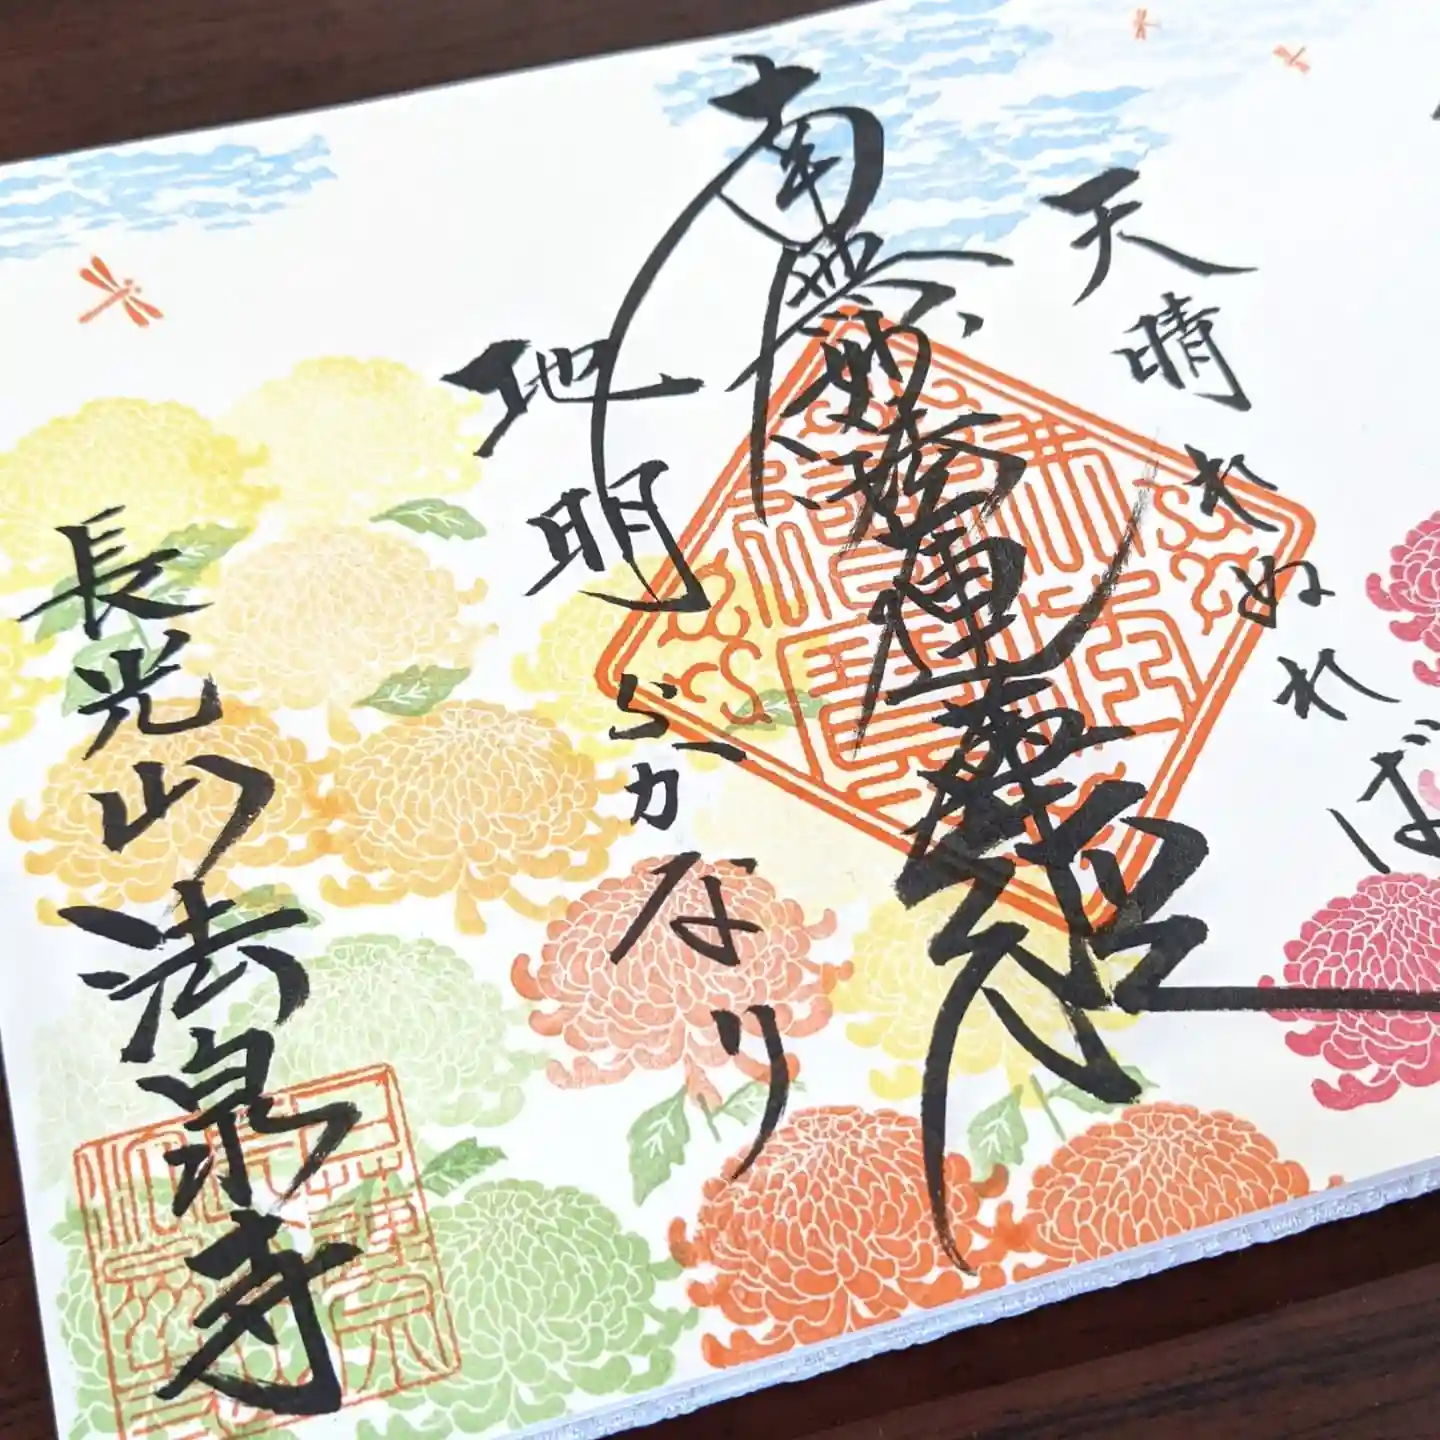 天晴れぬれば
南無妙法蓮華経
地明らかなり
長光山法泉寺